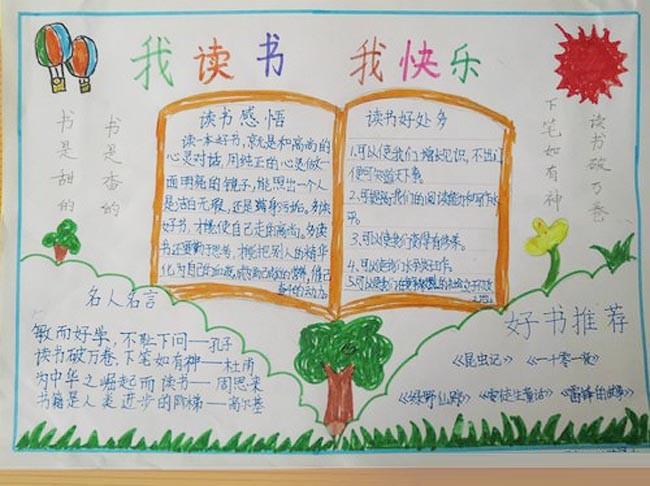 我读书 我快乐
书是香的
书是甜的
读书破万卷
下笔如有神
读书感悟
读一本好书，就是和高尚的
心灵对话，用纯正的心灵做一
面明亮的镜子，能照出一个人
是洁白无瑕，还是满身污垢。多读
好书，才能使自己走向高尚。多读
书还要勤于思考，才能把别人的精华
化为自己的血液，成为自己成长的营养，催己
奋斗的动力。
读书好处多
1.可以使我们增长见识，不出门
便可知道天下事。
2.可提高我们的阅读能力和写作水
平。
3.可以使我们变得有修养。
4.可以使我们找到好工作。
5.可以使我们在
名人名言
敏而好学，不耻下问——孔子
读书破万卷，下笔如有神——杜甫
为中华之崛起而读书——周恩来
书籍是人类进步的阶梯——高尔基
好书推荐
《昆虫记》 《一千零一夜》
《绿野仙踪》 《安徒生童话》 《雷锋的故事》